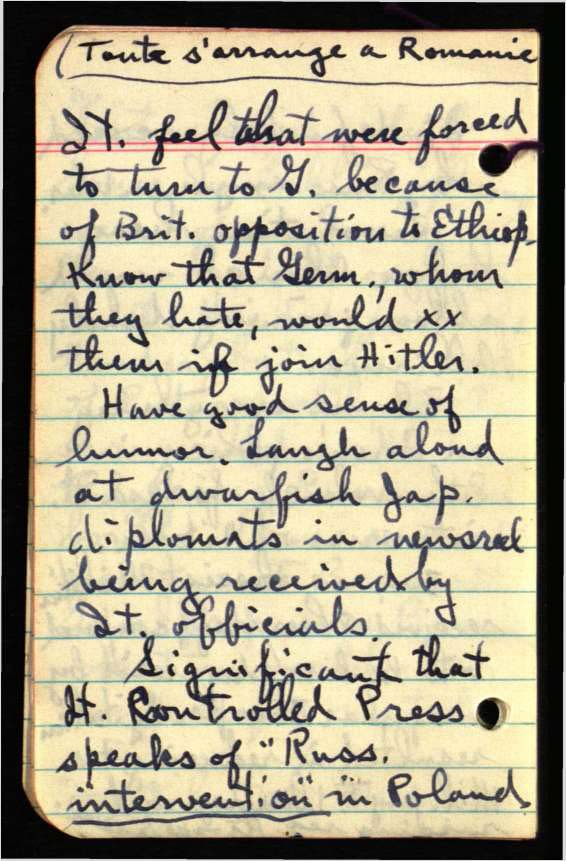 (Toute s'arrange a Romanie
It. feel that were forced
to turn to G. because
of Brit. opposition to Ethiop.
Know that Germ., whom
they hate, would xx
them if join Hitler.
Have good sense of
humor. Laugh aloud
at dwarfish Jap.
diplomats in newsreel
being received by
It. officials.
Significant that
It. Controlled Press
speaks of "Russ.
intervention" in Poland